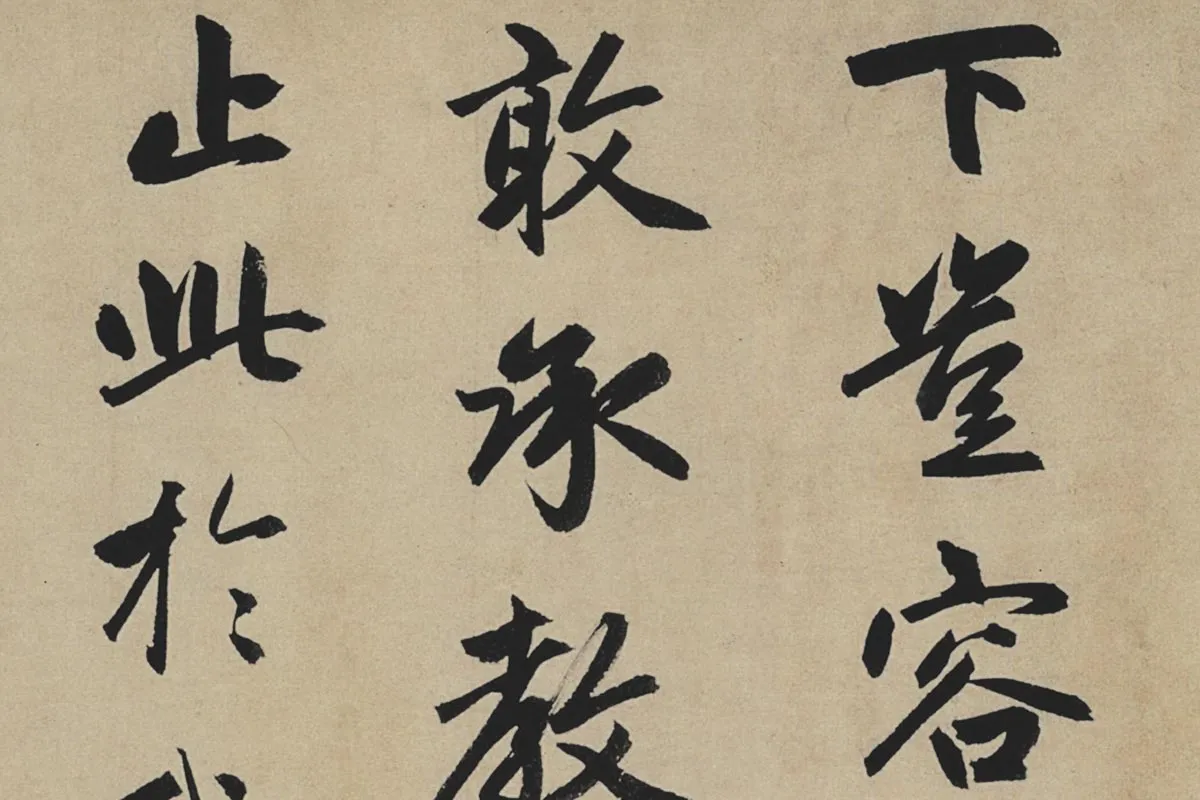 下豈容
敢承教
止此於